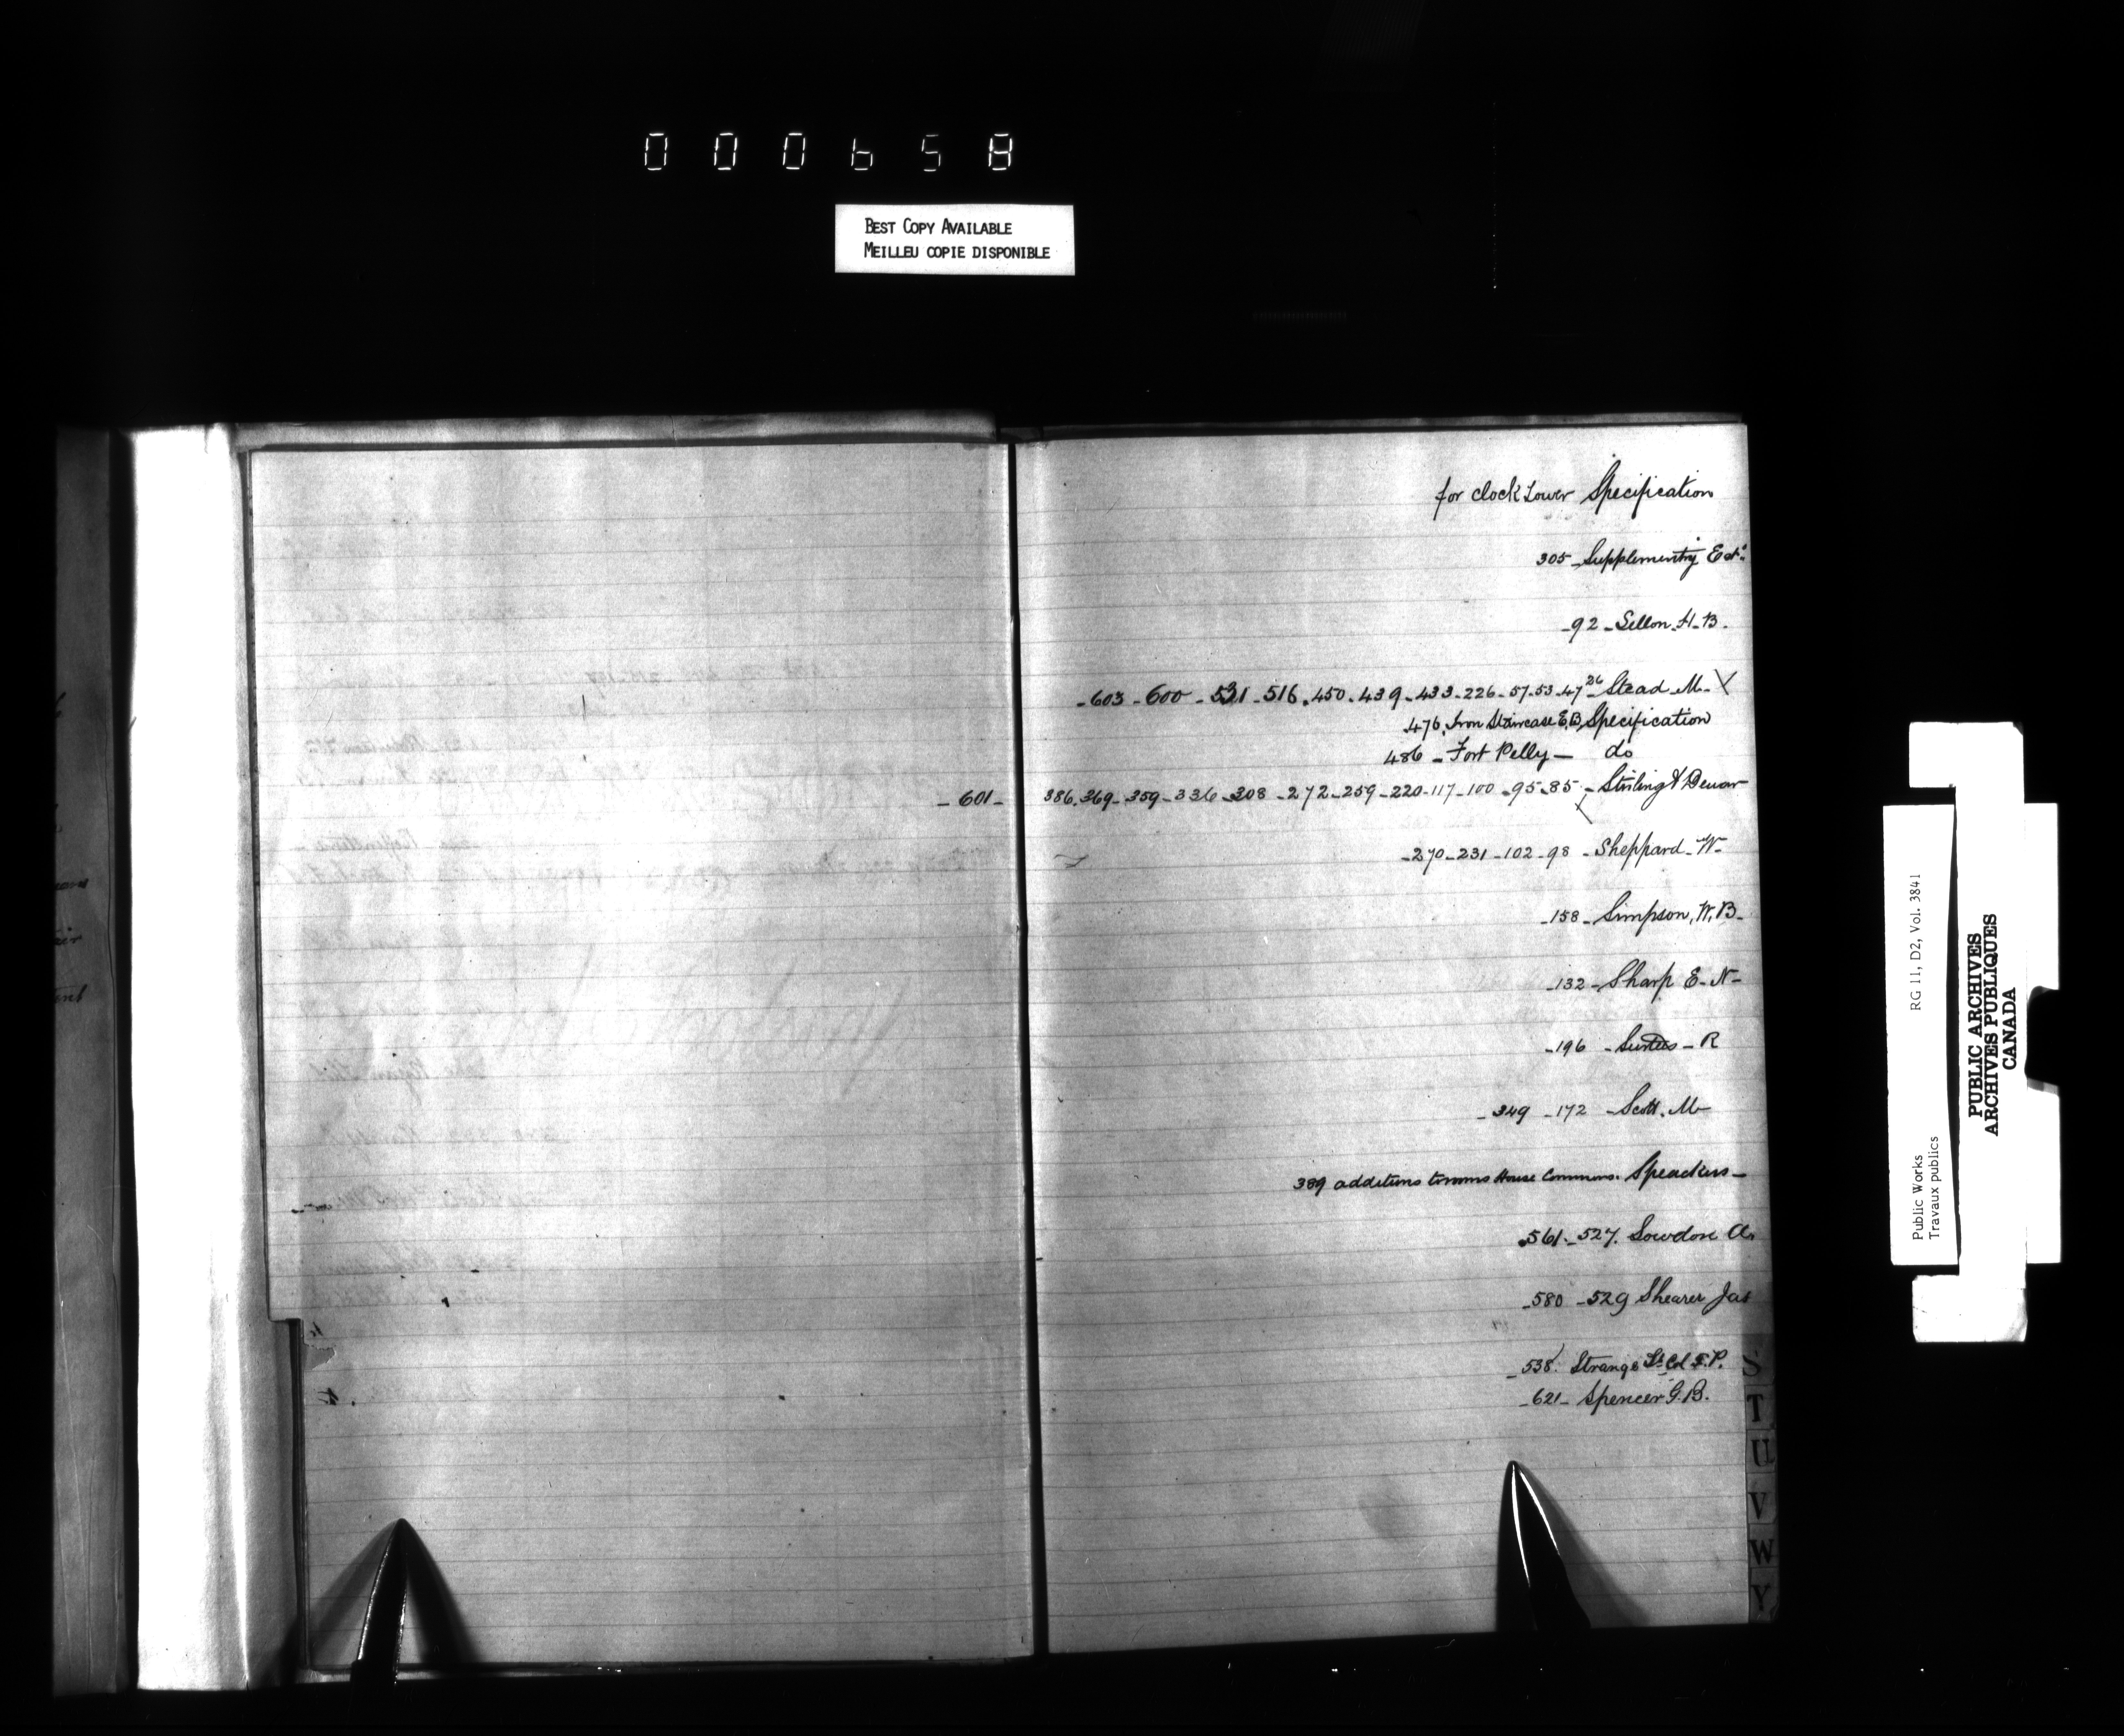 000658
BEST COPY AVAILABLE
MEILLEU COPIE DISPONIBLE
for clock Tower Specification
305 - Supplementry Est.
- 92 - Sellon - H - B.
- 603 - 600 - 531 - 516 . 450 . 439 - 433 - 226 - 57 - 53 - 47 26 - Stead M -
476. Iron Staircase E.B. Specification
486 - Fort Pelly - do
- 601 - 386. 369 - 359 - 336 - 308 - 272 - 259 - 220 - 117 - 100 - 95 - 85 - Stirling & Dewar
- 270 - 231 - 102 - 98 - Sheppard - W -
- 158 - Simpson, W, B -
- 132 - Sharp E - N -
- 196 - Surtees - R
- 349 - 172 - Scott. M -
389 additions to rooms House Commons. Speackers -
561. - 527. Sowdon A.
- 580 - 529 Shearer Jas
- 538. Strange Lt. Col T. P.
- 621 - Spencer G. B.
S
T
U
V
W
Y
Public Works RG 11, D2, Vol. 3841
Travaux publics
PUBLIC ARCHIVES
ARCHIVES PUBLIQUES
CANADA